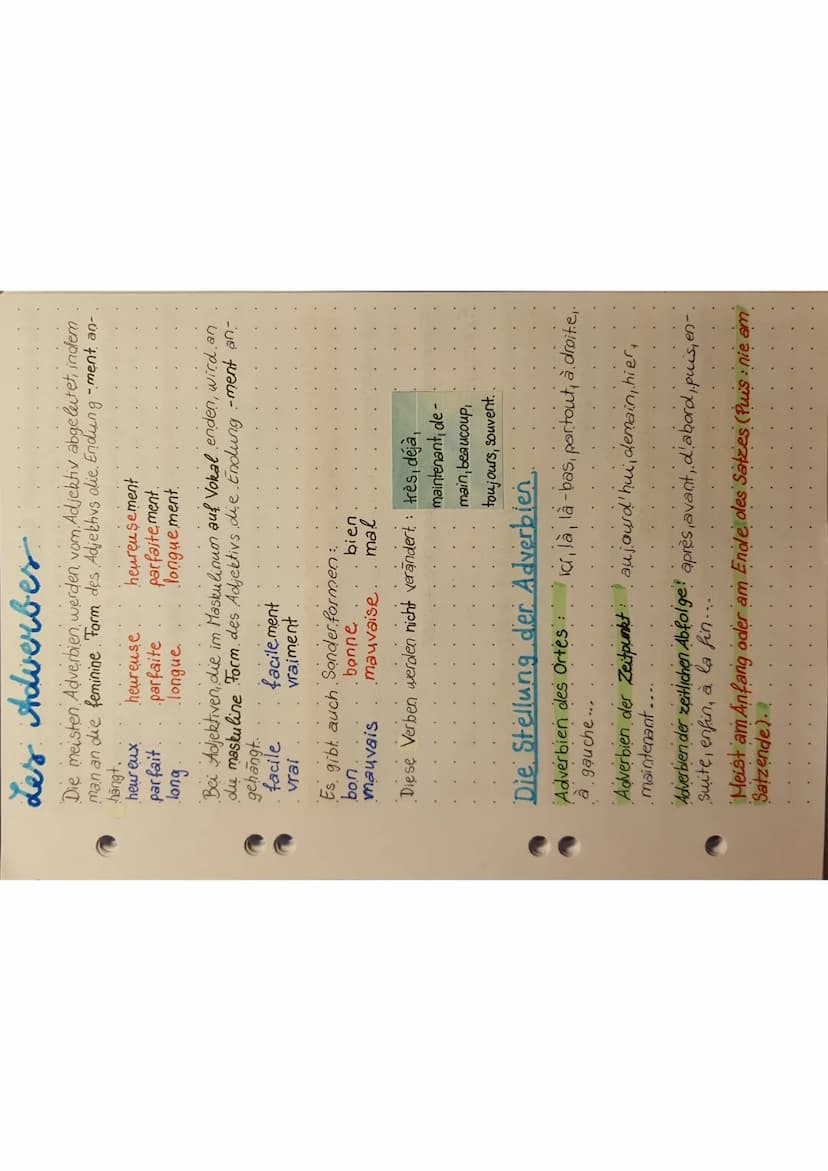 Les Adverbes
Die meisten Adverbien werden vom Adjektiv abgeleitet, indem
man an die feminine Form des Adjektivs die Endung -ment an-
hängt.
heureux heureuse heureusement
parfait parfaite parfaitement
long longue longuement
Bei Adjektiven, die im Maskulinum auf Vokal enden, wird an
die maskuline Form des Adjektivs die Endung -ment an-
gehängt.
facile facilement
vrai vraiment
Es gibt auch Sonderformen:
bon bonne bien
mauvais mauvaise mal
Diese Verben werden nicht verändert: très, déjà,
maintenant, de-
main, beaucoup,
toujours, souvent
Die Stellung der Adverbien
Adverbien des Ortes: ici, là, là-bas, partout, à droite,
à gauche...
Adverbien der Zeitpunkt: aujourd'hui, demain, hier,
maintenant....
Adverbien der zeitlichen Abfolge: après, avant, d'abord, puis, en-
suite, enfin, à la fin...
Meist am Anfang oder am Ende des Satzes (Puis: nie am
Satzende).